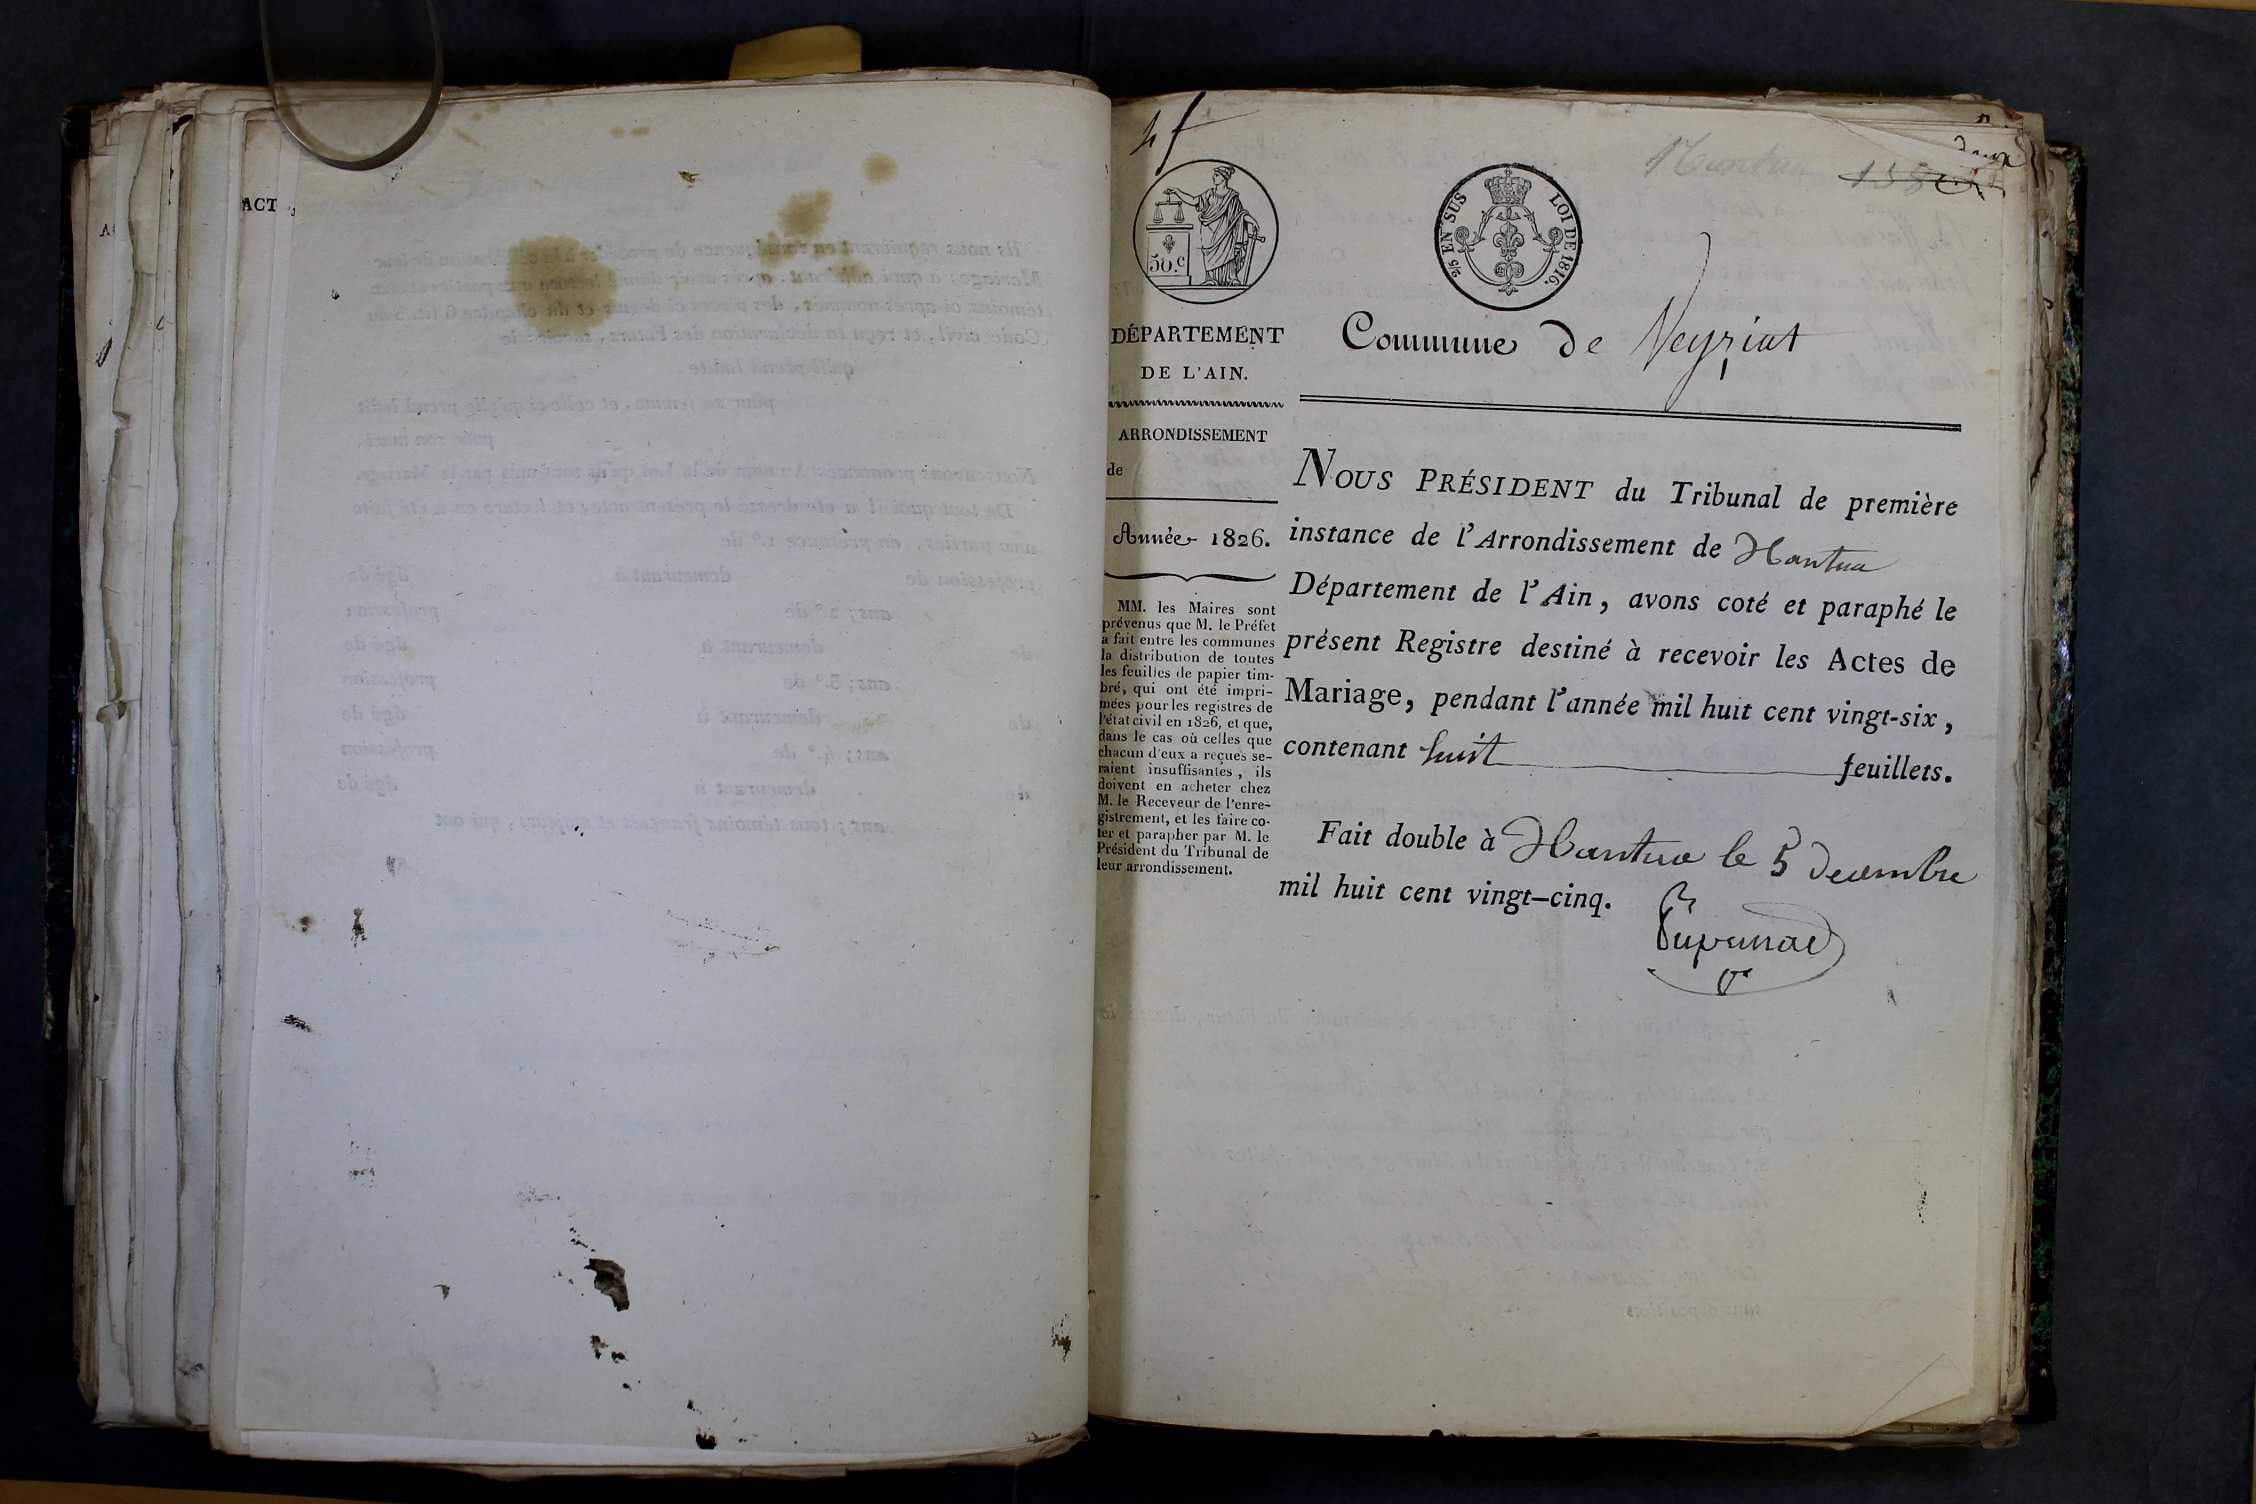 ACT
50.c
2/5 EN SUS LOI DE 1816.
DÉPARTEMENT
DE L'AIN.
ARRONDISSEMENT
de
Année 1826.
MM. les Maires sont
prévenus que M. le Préfet
a fait entre les communes
la distribution de toutes
les feuilles de papier tim-
bré, qui ont été impri-
mées pour les registres de
l'état civil en 1826, et que,
dans le cas où celles que
chacun d'eux a reçues se-
raient insuffisantes, ils
doivent en acheter chez
M. le Receveur de l'enre-
gistrement, et les faire co-
ter et parapher par M. le
Président du Tribunal de
leur arrondissement.
Commune de Veyziat
NOUS PRÉSIDENT du Tribunal de première
instance de l'Arrondissement de Nantua
Département de l'Ain, avons coté et paraphé le
présent Registre destiné à recevoir les Actes de
Mariage, pendant l'année mil huit cent vingt-six,
contenant huit feuillets.
Fait double à Nantua le 5 Decembre
mil huit cent vingt-cinq.